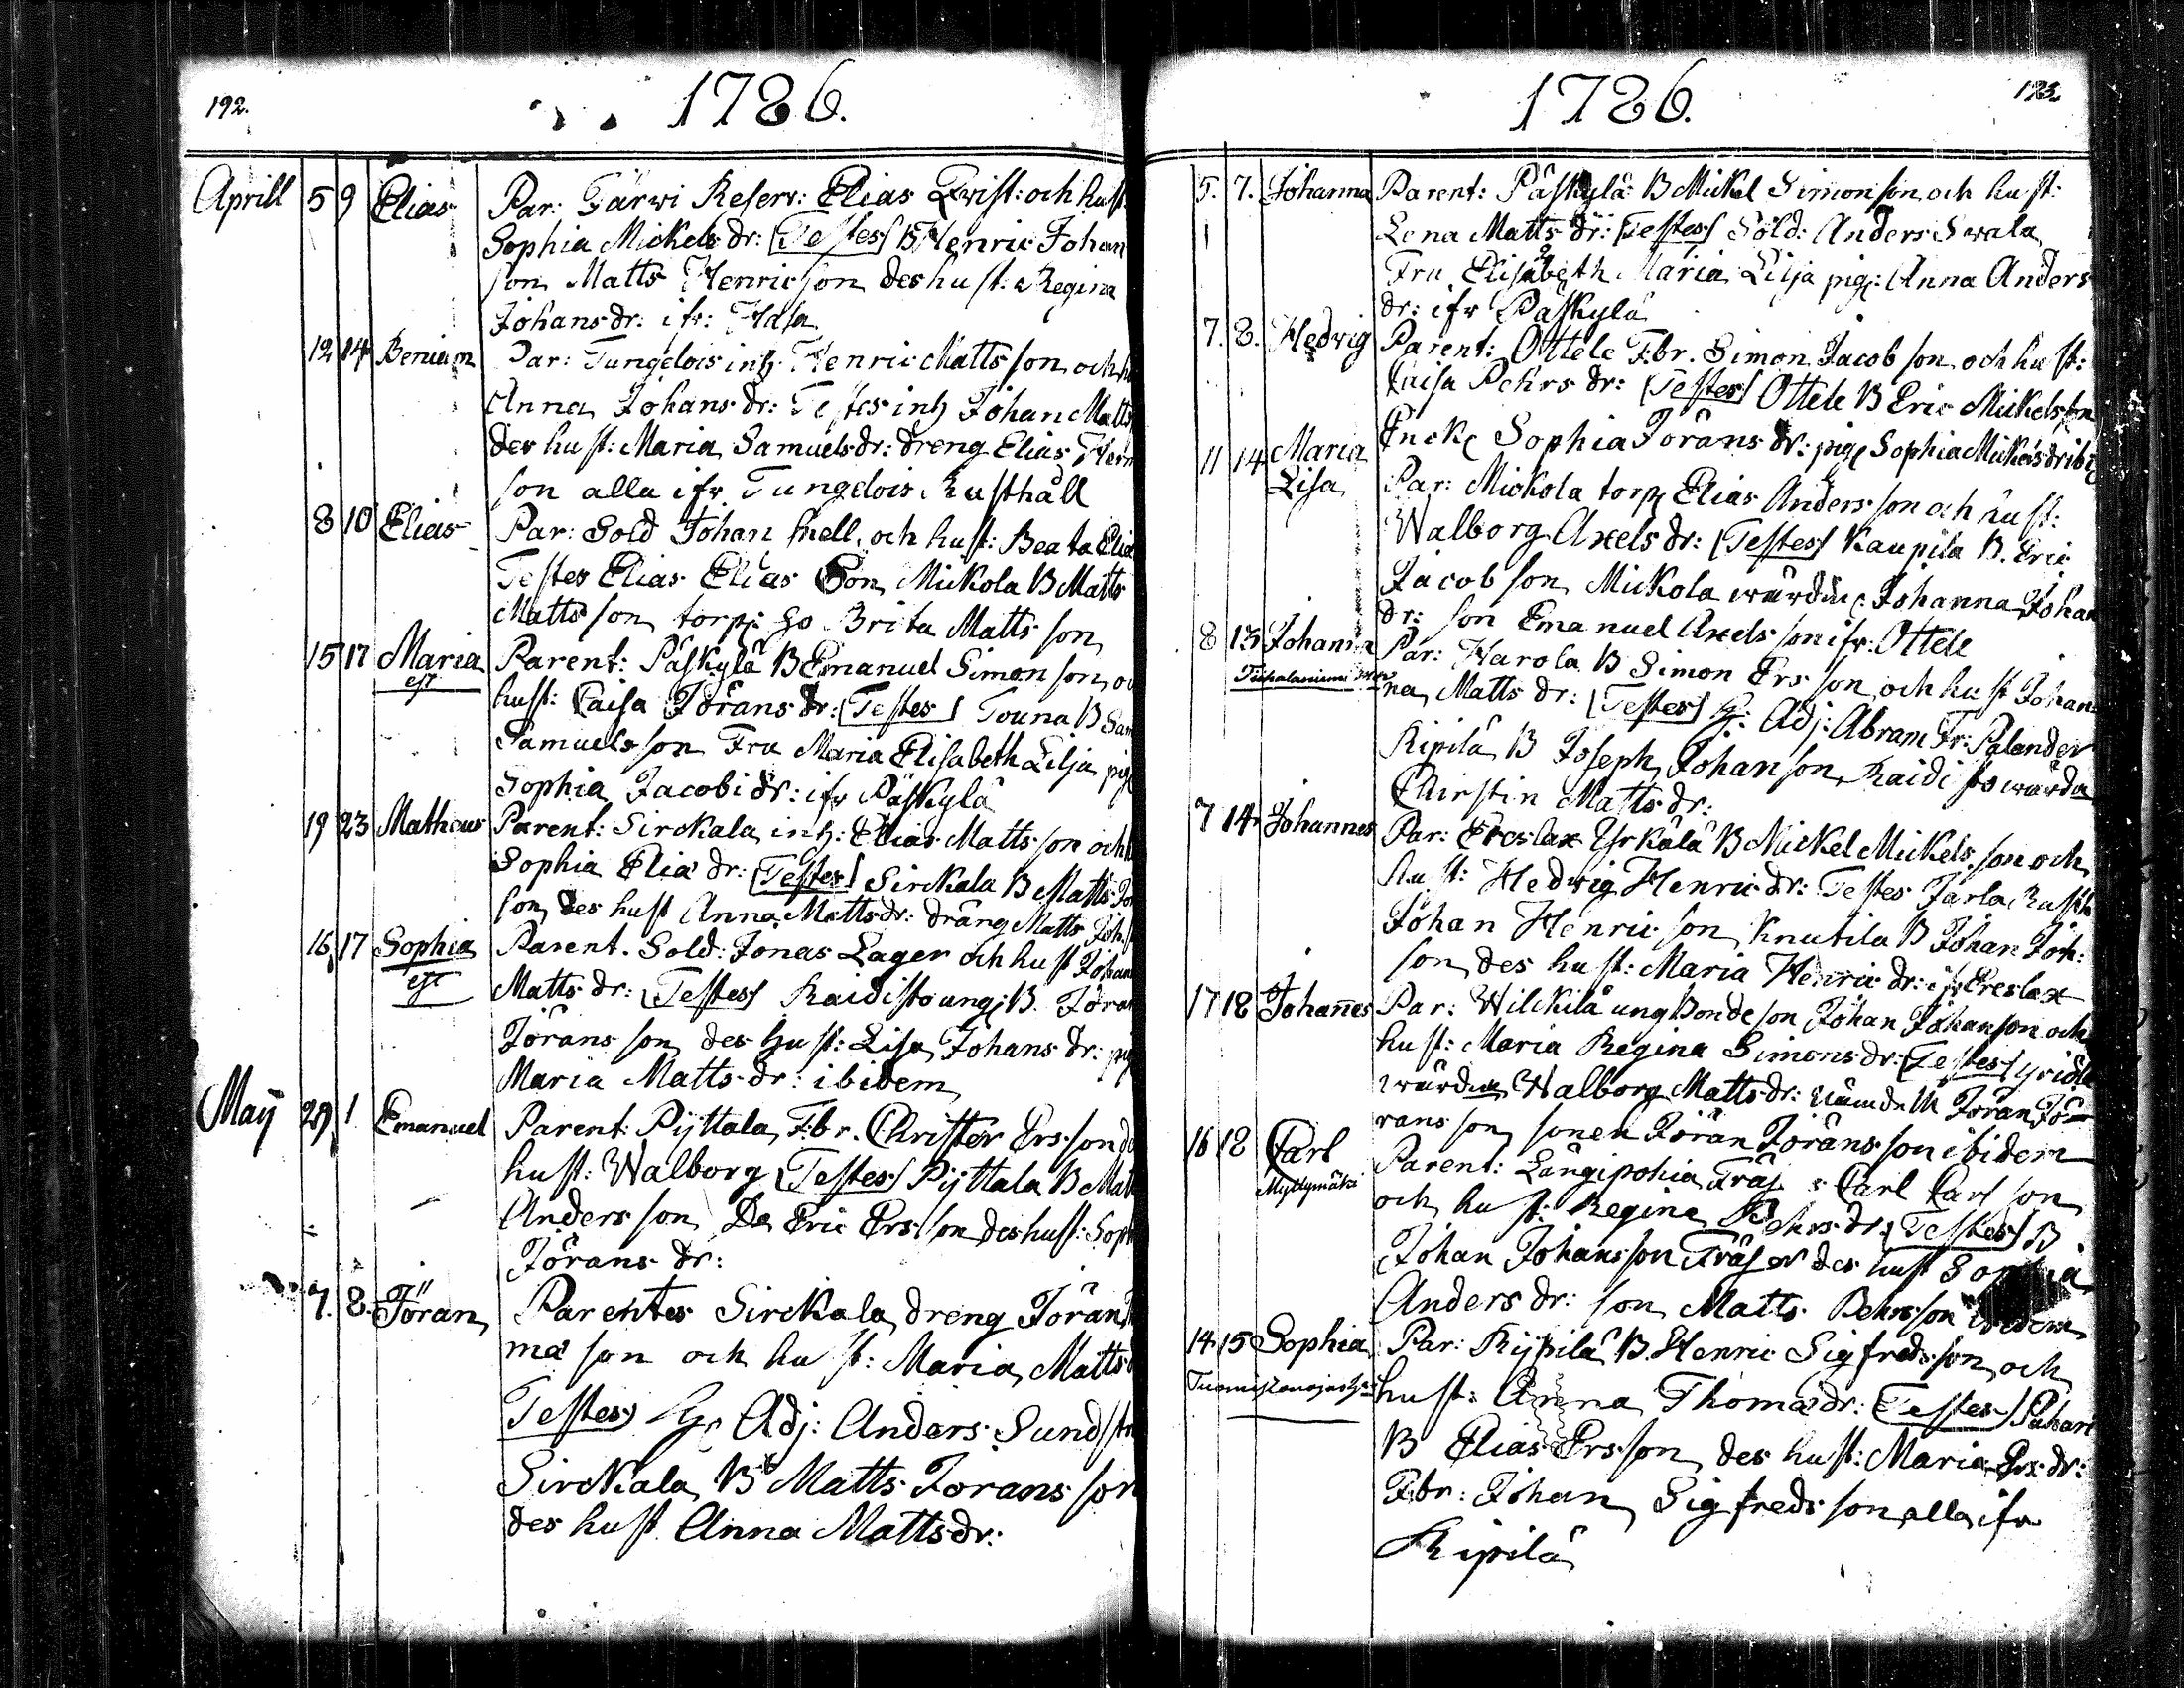 192.
1786.
Aprill 5 9 Elias Par: Järwi Reserv: Elias Qwist: och hust:
Sophia Mickels dr: Testes B Henric Johan
son Matts Henricson des hust: Regina
Johans dr: ifr:
12 14 Par: Tungelois inh: Henric Matts son och
Anna Johans dr: Testes inh Johan Matts
des hust: Maria Samuels dr: dreng Elias Hen
son alla ifr Tungelois Rusthåll
8 10 Elias Par: Sold Johan Snell och hust: Beata Elia
Testes Elias Elias Son Mickola B Matts
Matts son torp: Brita Matts son
15 17 Maria Parent: Päskylä B Emanuel Simon son
hust: Caisa Jörans dr: Testes Touna B Sam
Samuels son Fru Maria Elisabeth Lilja pig
Sophia Jacobi dr: ifr Päskylä
19 23 Matheus Parent: Sirckala inh: Elias Matts son och
Sophia Eliæ dr: Testes Sirckala B Matts
son des hust Anna Matts dr: dräng Matts Joh.
16 17 Sophia Parent. Sold: Jonas Lager och hust Johan
Matts dr: Testes Raidisto ung: B. Jöran
Jörans son des Hust: Lisa Johans dr: pig
Maria Matts dr: ibidem
Maÿ 29 1 Emanuel Parent: Pyttala F:br. Christer Ers son
hust: Walborg Testes Pyttala B Mat
Anders son Do Eric Ers son des hust: Soph
Jörans dr:
7. 8. Jöran Parentes Sirckala dreng Jöran
mæ son och hust: Maria Matts
Testes Hr Adj: Anders Sundst
Sirckala B Matts Jorans son
des hust Anna Matts dr:
1786.
193
5. 7. Johanna Parent: Päskylä B Mickel Simon son och hust:
Lena Matts dr: Testes Sold: Anders Swala
Fru Elisabeth Maria Lilja pig: Anna Anders
dr: ifr Päskylä
7. 8. Hedwig Parent: Ottele F:br. Simon Jacob son och hust:
Caisa Pehrs dr: Testes Ottele B Eric Mickels son
Enck Sophia Jörans dr: pig Sophia Mickels dr ibi
11 14 Maria Par: Mickola torp Elias Anders son och hust:
Lisa
Walborg Axels dr: Testes Kaupila B. Eric
Jacob son Mickola wärdin: Johanna Johan
dr: son Emanuel Axels son ifr: Ottele
8 13 Johanna Par: Harola B Simon Ers son och hust Johan
na Matts dr: Testes Hr. Adj: Abram Fr: Palander
Ripilä B Joseph Johan son Raidisto wärda
Christin Matts dr:
7 14 Johannes Par: Ereslax Yrkälä B Mickel Mickels son och
hust: Hedwig Henric dr: Testes Jarla Rusth
Johan Henric son Knutila B Johan Joh:
son des hust: Maria Henric dr: ifr Ereslax
17 18 Johannes Par: Wilckilä ung Bonde son Johan Johanson och
hust: Maria Regina Simons dr: Testes
wärdin Walborg Matts dr: nämdem Jöran Jö
rans son sonen Jöran Jörans son ibidem
16 18 Carl Parent: Långipohia Fräs: Carl Carl son
Myllymäki
och hust: Regina Pehrs dr: Testes B
Johan Johans son Fräs: des hust Sophia
Anders dr: son Matts Pehrsson ibidem
14 15 Sophia Par: Ripilä B. Henric Sigfreds son och
hust: Anna Thomæ dr: Testes
B Elias Ersson des hust: Maria Ers dr:
F:br: Johan Sigfreds son alla ifr
Ripilä